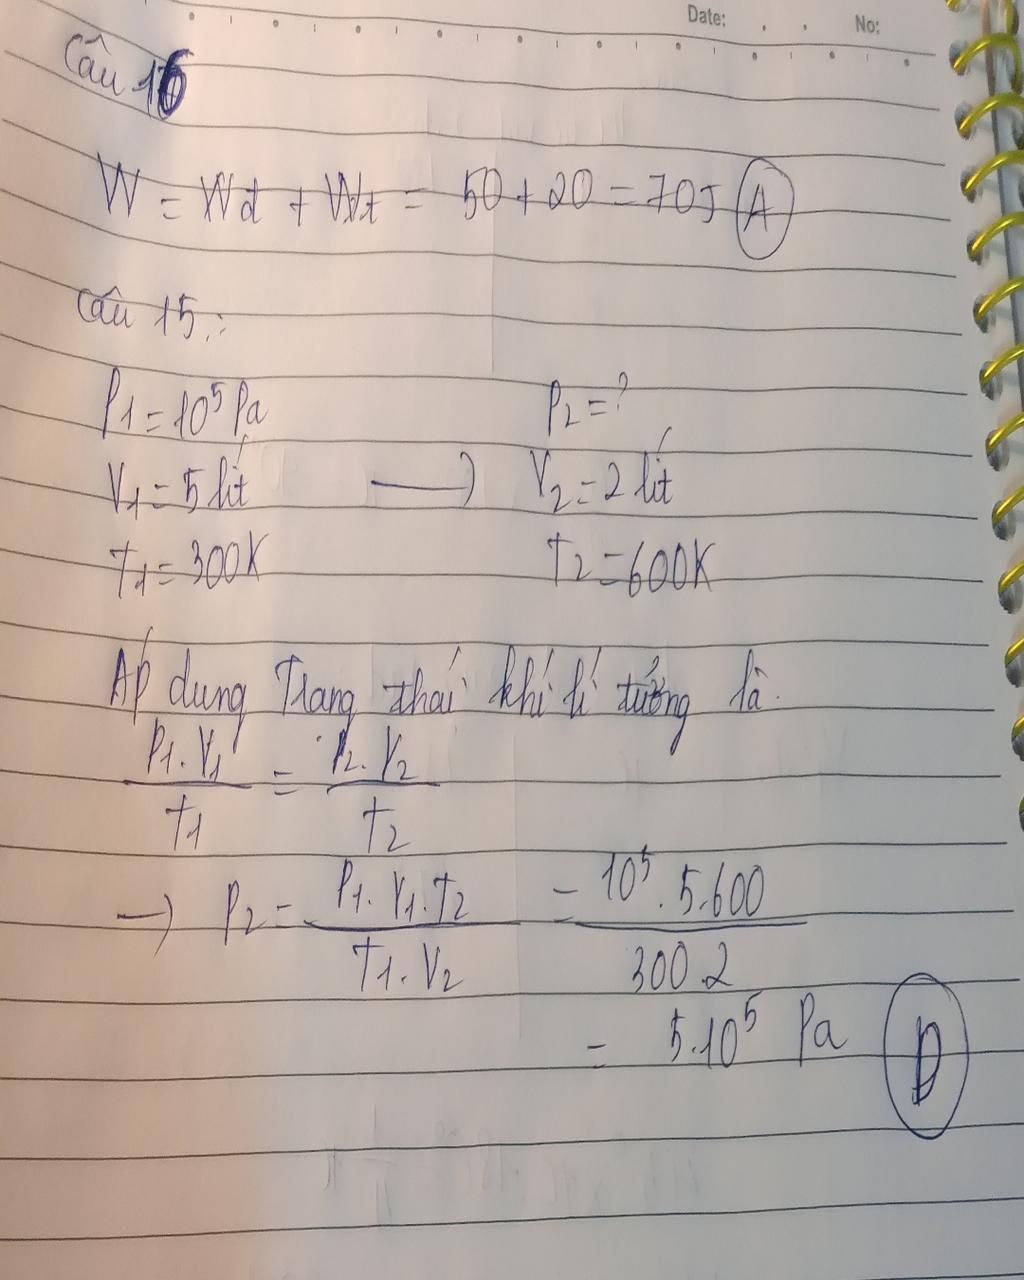 Date: No:
Câu 16
W = Wđ + Wt = 50 + 20 = 70J A
Câu 15:
P1 = 10⁵ Pa P2 = ?
V1 = 5 lít → V2 = 2 lít
T1 = 300K T2 = 600K
Áp dung Trang thái khí lí tưởng là.
P1.V1 / T1 = P2.V2 / T2
→ P2 = P1.V1.T2 / T1.V2 = 10⁵.5.600 / 300.2
= 5.10⁵ Pa D